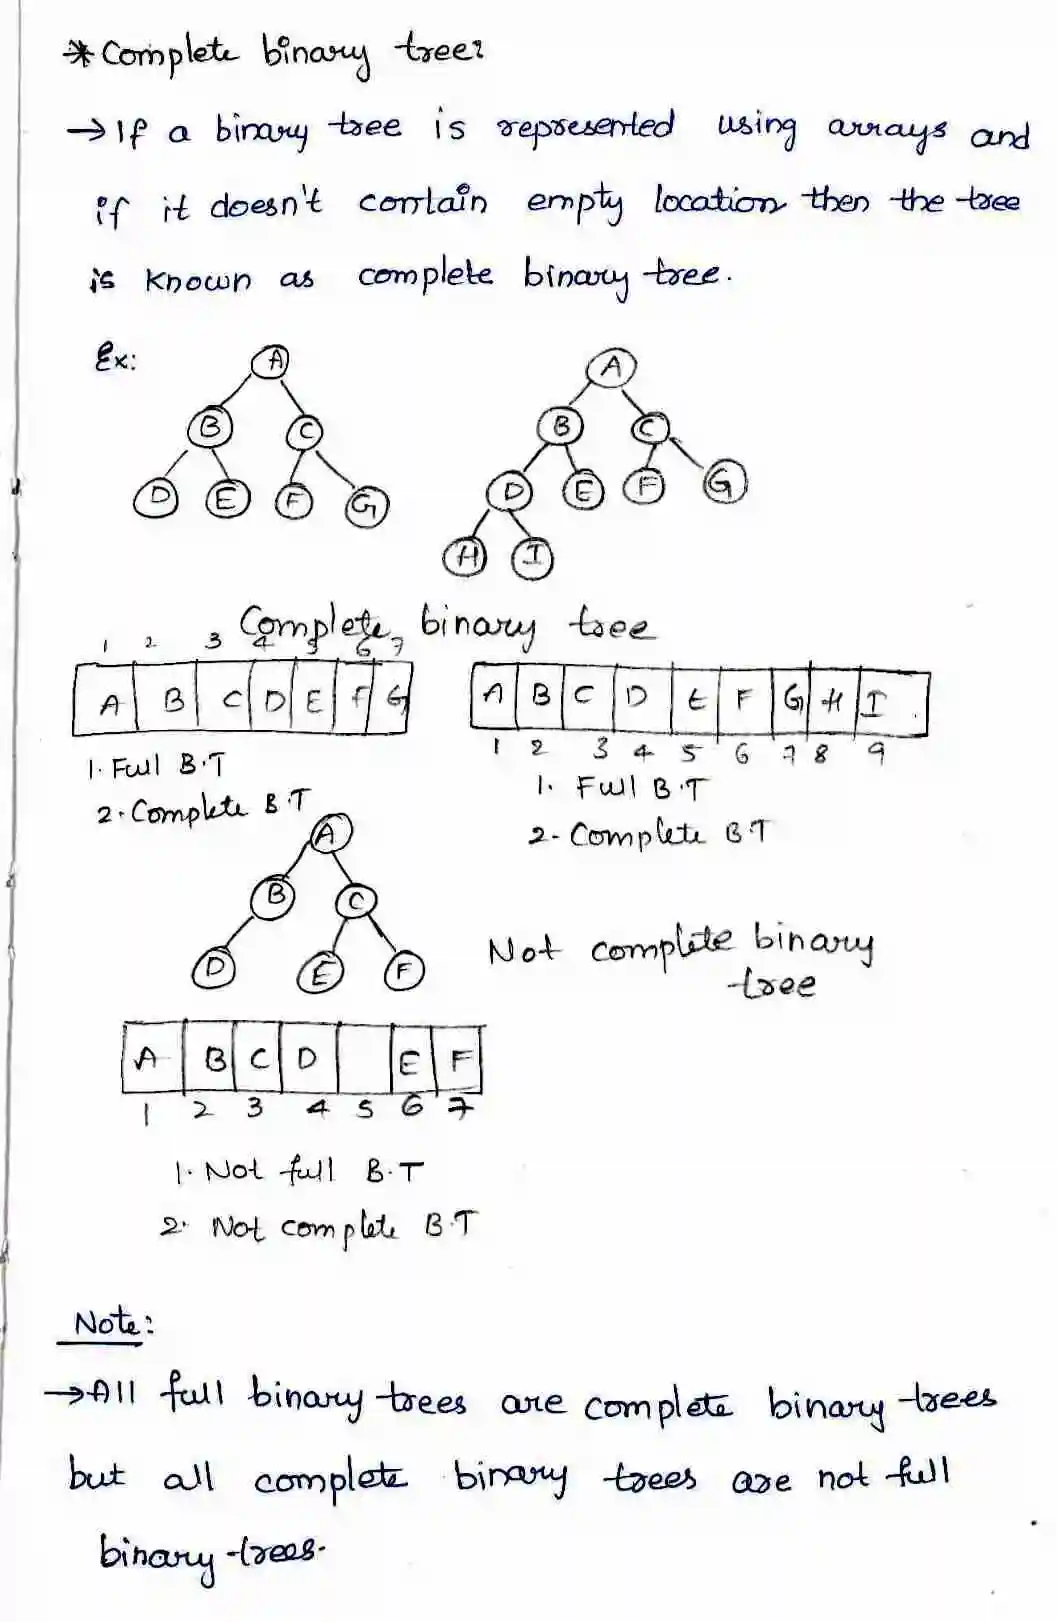 * Complete binary tree:
→ If a binary tree is represented using arrays and
if it doesn't contain empty location then the tree
is known as complete binary tree.
Ex:
A
B C
D E F G
A
B C
D E F G
H I
Complete binary tree
1 2 3 4 5 6 7
A B C D E F G
A B C D E F G H I
1 2 3 4 5 6 7 8 9
1. Full B.T
2. Complete B.T
1. Full B.T
2- Complete B.T
A
B C
D E F
Not complete binary
tree
A B C D E F
1 2 3 4 5 6 7
1. Not full B.T
2. Not complete B.T
Note:
→ All full binary trees are complete binary trees
but all complete binary trees are not full
binary trees.